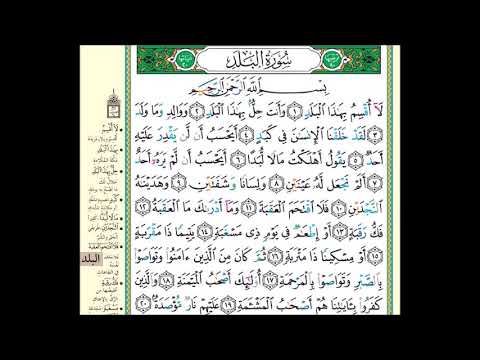 سُورَةُ البَلَدِ
بِسْمِ ٱللَّهِ ٱلرَّحْمَٰنِ ٱلرَّحِيمِ
لَآ أُقْسِمُ بِهَٰذَا ٱلْبَلَدِ ١ وَأَنتَ حِلٌّۢ بِهَٰذَا ٱلْبَلَدِ ٢ وَوَالِدٍ وَمَا وَلَدَ
٣ لَقَدْ خَلَقْنَا ٱلْإِنسَٰنَ فِي كَبَدٍ ٤ أَيَحْسَبُ أَن لَّن يَقْدِرَ عَلَيْهِ
أَحَدٌ ٥ يَقُولُ أَهْلَكْتُ مَالًا لُّبَدًا ٦ أَيَحْسَبُ أَن لَّمْ يَرَهُۥٓ أَحَدٌ
٧ أَلَمْ نَجْعَل لَّهُۥ عَيْنَيْنِ ٨ وَلِسَانًا وَشَفَتَيْنِ ٩ وَهَدَيْنَٰهُ
ٱلنَّجْدَيْنِ ١٠ فَلَا ٱقْتَحَمَ ٱلْعَقَبَةَ ١١ وَمَآ أَدْرَىٰكَ مَا ٱلْعَقَبَةُ ١٢
فَكُّ رَقَبَةٍ ١٣ أَوْ إِطْعَٰمٌ فِي يَوْمٍ ذِي مَسْغَبَةٍ ١٤ يَتِيمًا ذَا مَقْرَبَةٍ
١٥ أَوْ مِسْكِينًا ذَا مَتْرَبَةٍ ١٦ ثُمَّ كَانَ مِنَ ٱلَّذِينَ ءَامَنُوا۟ وَتَوَاصَوْا۟
بِٱلصَّبْرِ وَتَوَاصَوْا۟ بِٱلْمَرْحَمَةِ ١٧ أُو۟لَٰٓئِكَ أَصْحَٰبُ ٱلْمَيْمَنَةِ ١٨ وَٱلَّذِينَ
كَفَرُوا۟ بِـَٔايَٰتِنَا هُمْ أَصْحَٰبُ ٱلْمَشْـَٔمَةِ ١٩ عَلَيْهِمْ نَارٌ مُّؤْصَدَةٌۢ ٢٠
البلد